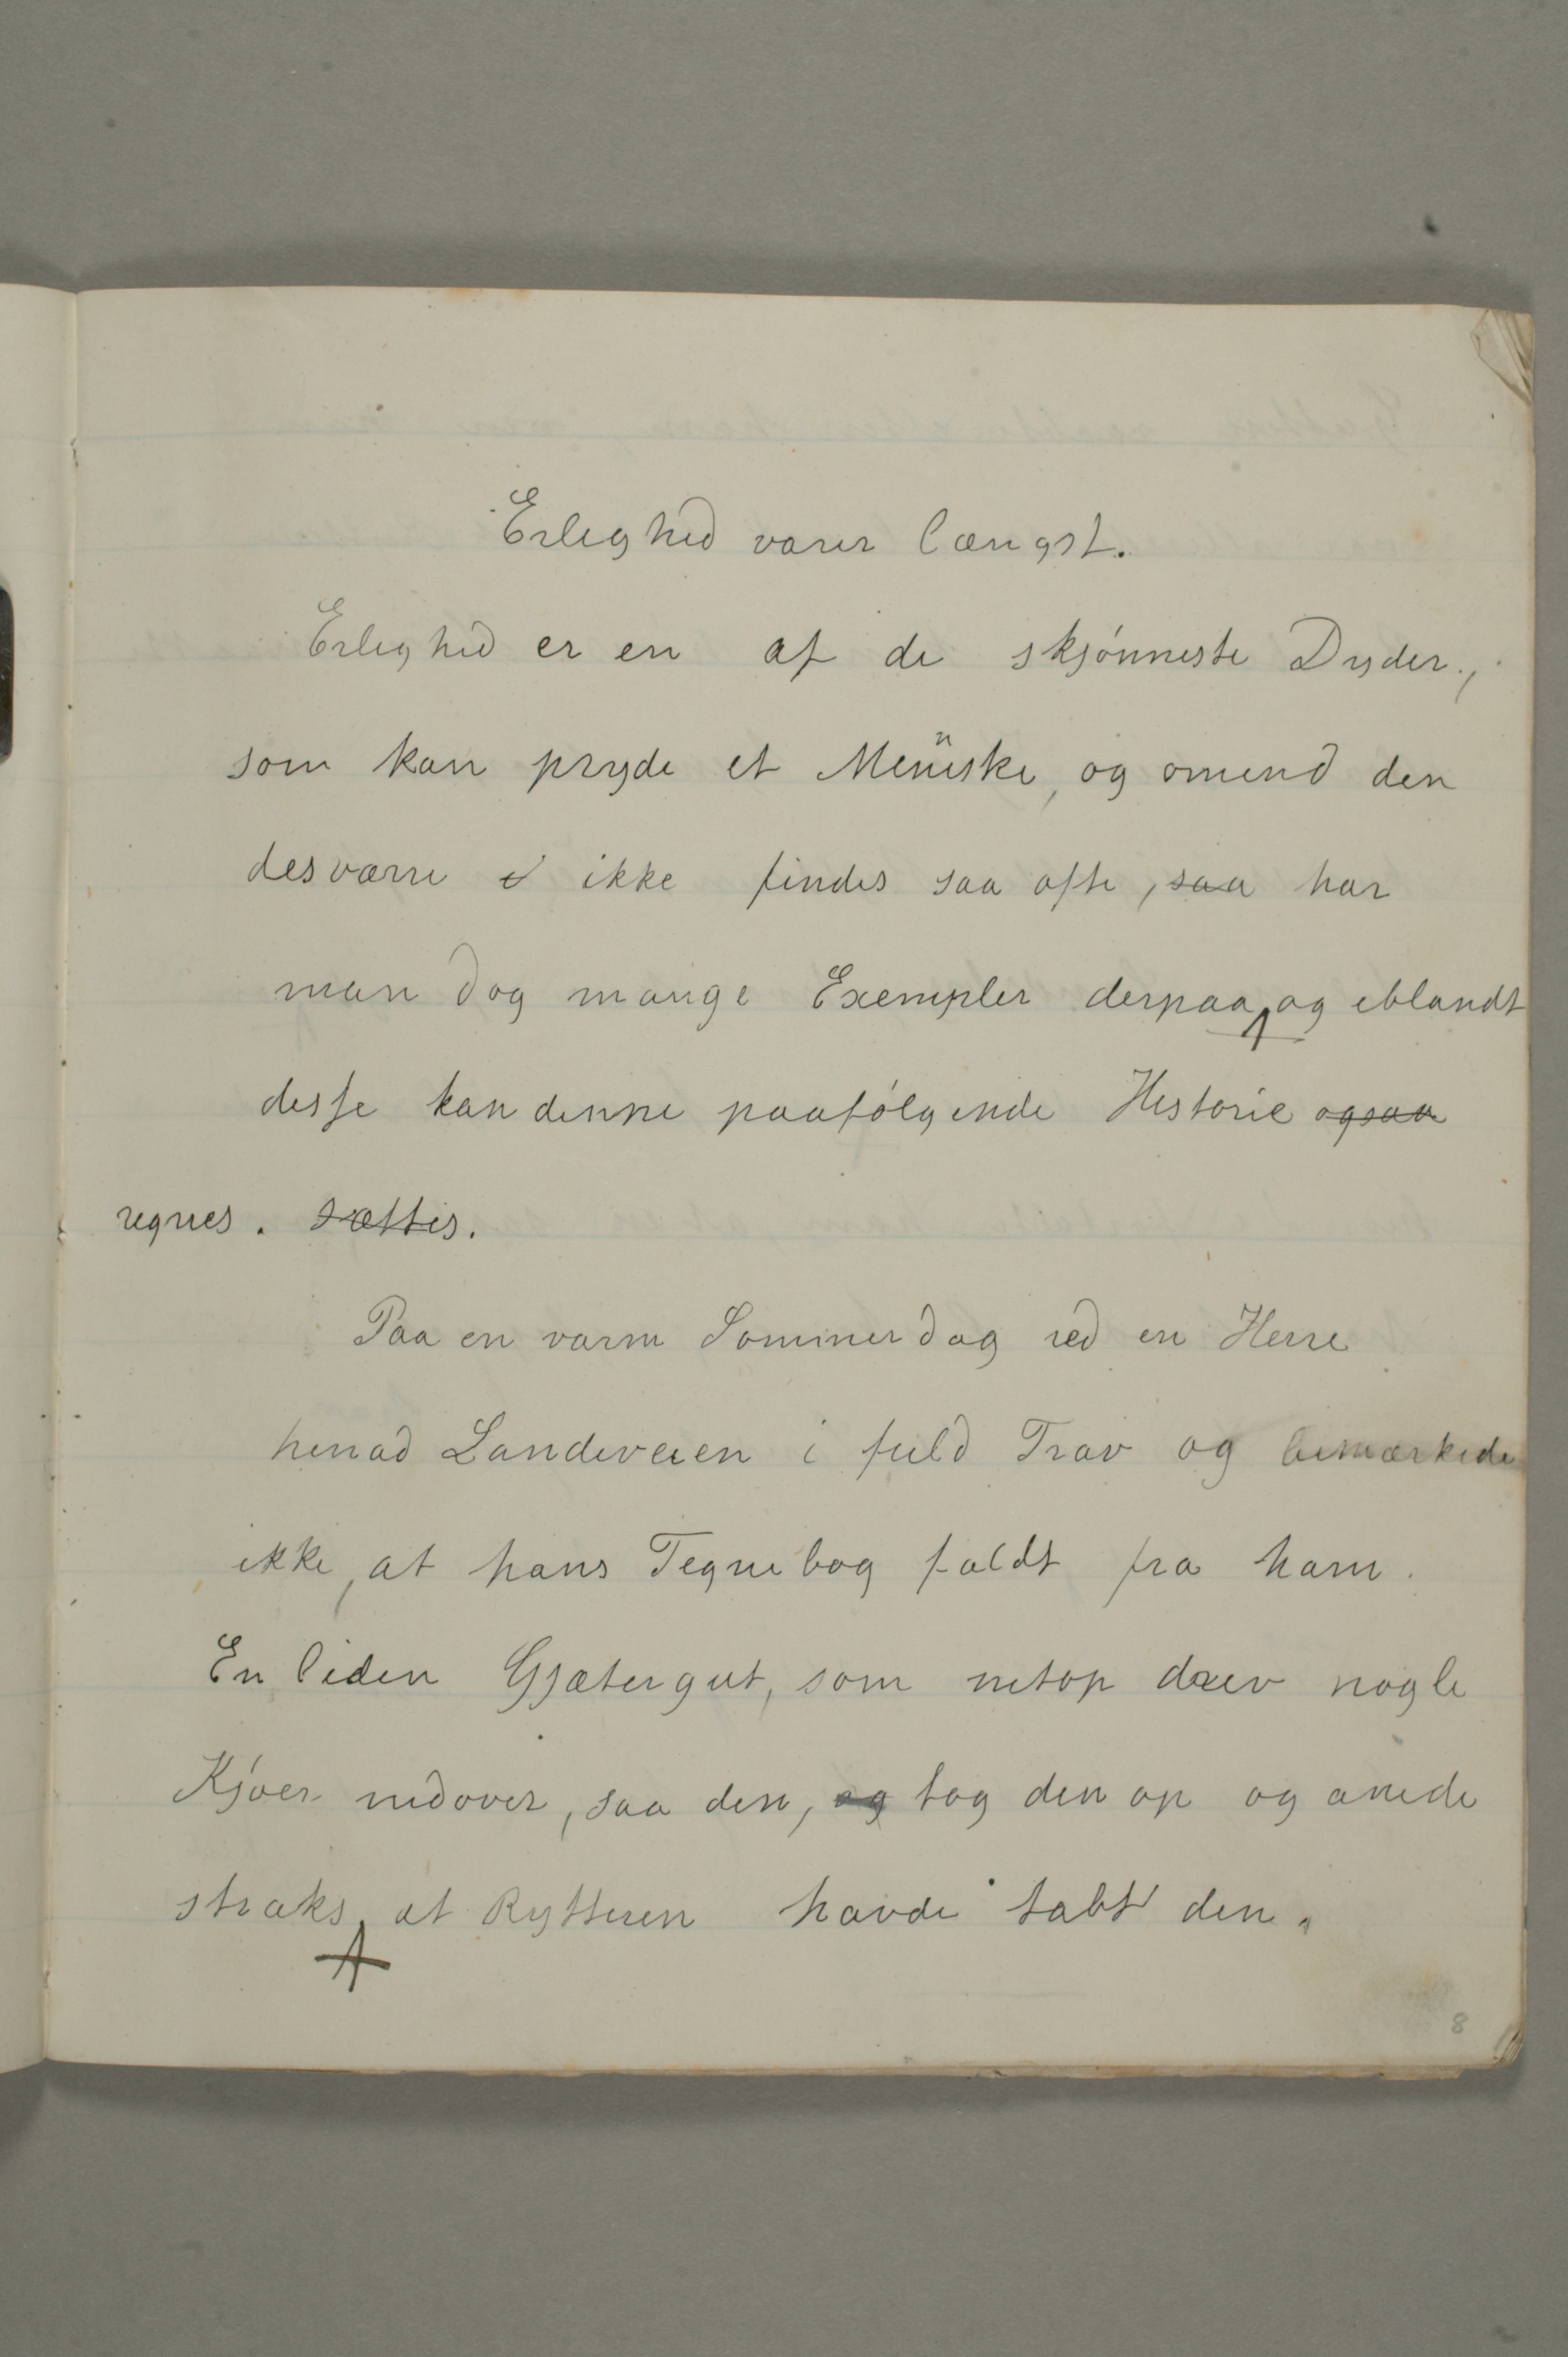 Erleghed varer længst.
Erleghed er en af de skjønneste Dyder,
som kan pryde et Menneske, og omend den
desværre ei ikke findes saa ofte, saa har
man dog mange Exempler derpaa, og eblandt
desse kan denne paafølgende Historie ogsaa
regnes. sættes.
Paa en varm Sommerdag red en Herre
henad Landeveien i fuld Trav og bemærkede
ikke, at hans Tegnebog faldt fra ham.
En liden Gjætergut, som netop drev nogle
Kjøer nedover, saa den, og tog den op og anede
straks, at Rytteren havde tabt den.
8